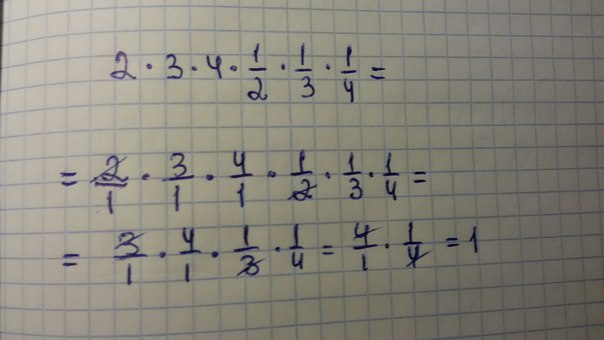 2 · 3 · 4 · 1/2 · 1/3 · 1/4 =
= 2/1 · 3/1 · 4/1 · 1/2 · 1/3 · 1/4 =
= 3/1 · 4/1 · 1/3 · 1/4 = 4/1 · 1/4 = 1